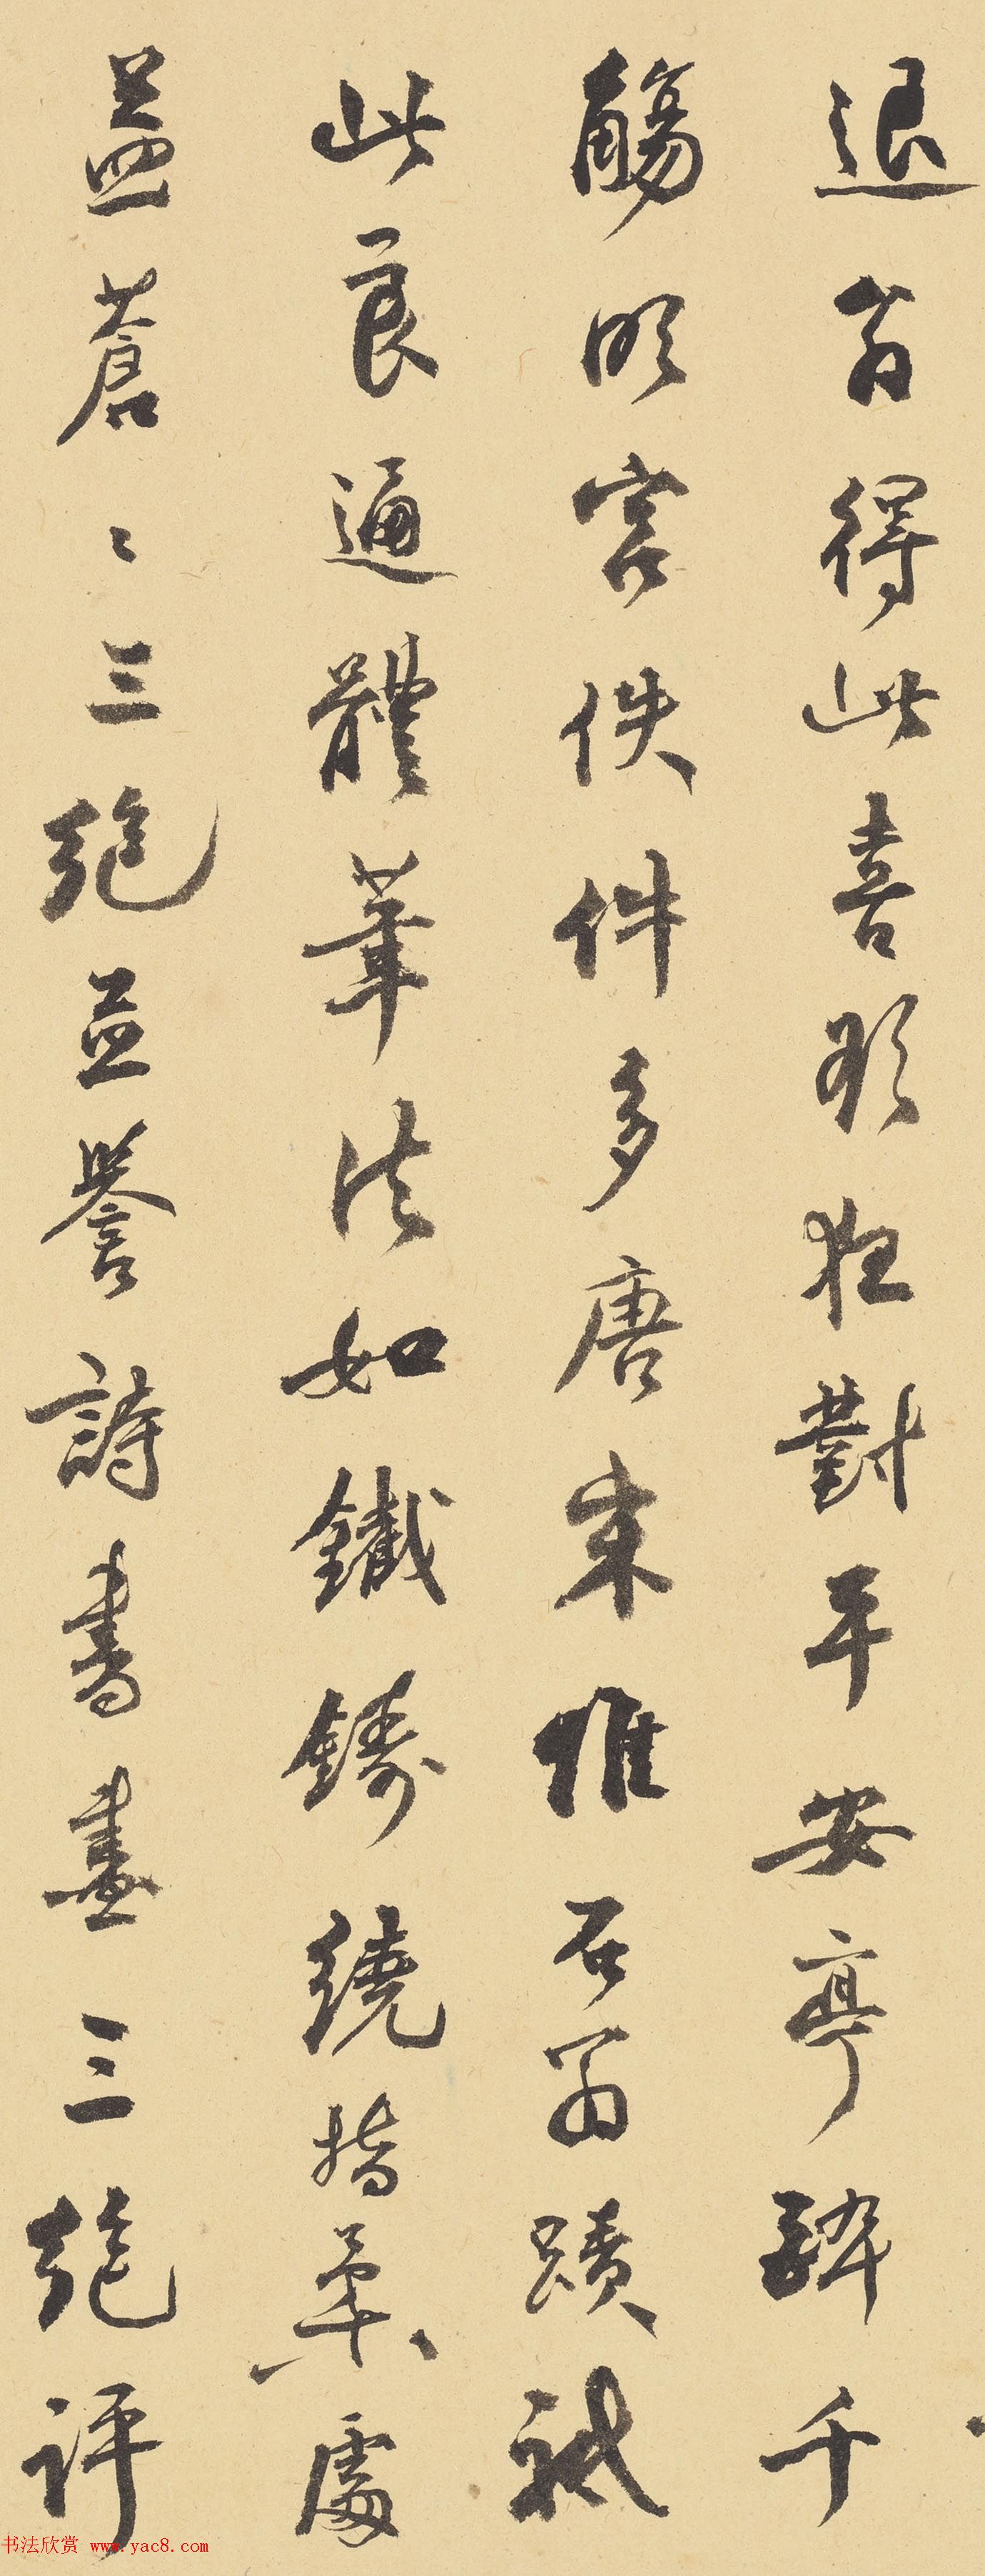 退翁得此喜欲狂對平安亭醉千
觴明窗佚件多唐宋惟石翁蹟祗
此良通體筆法如鐵鑄繞指柔處
益蒼〻三絕益譽詩書畫三絕評
书法欣赏 www.yac8.com